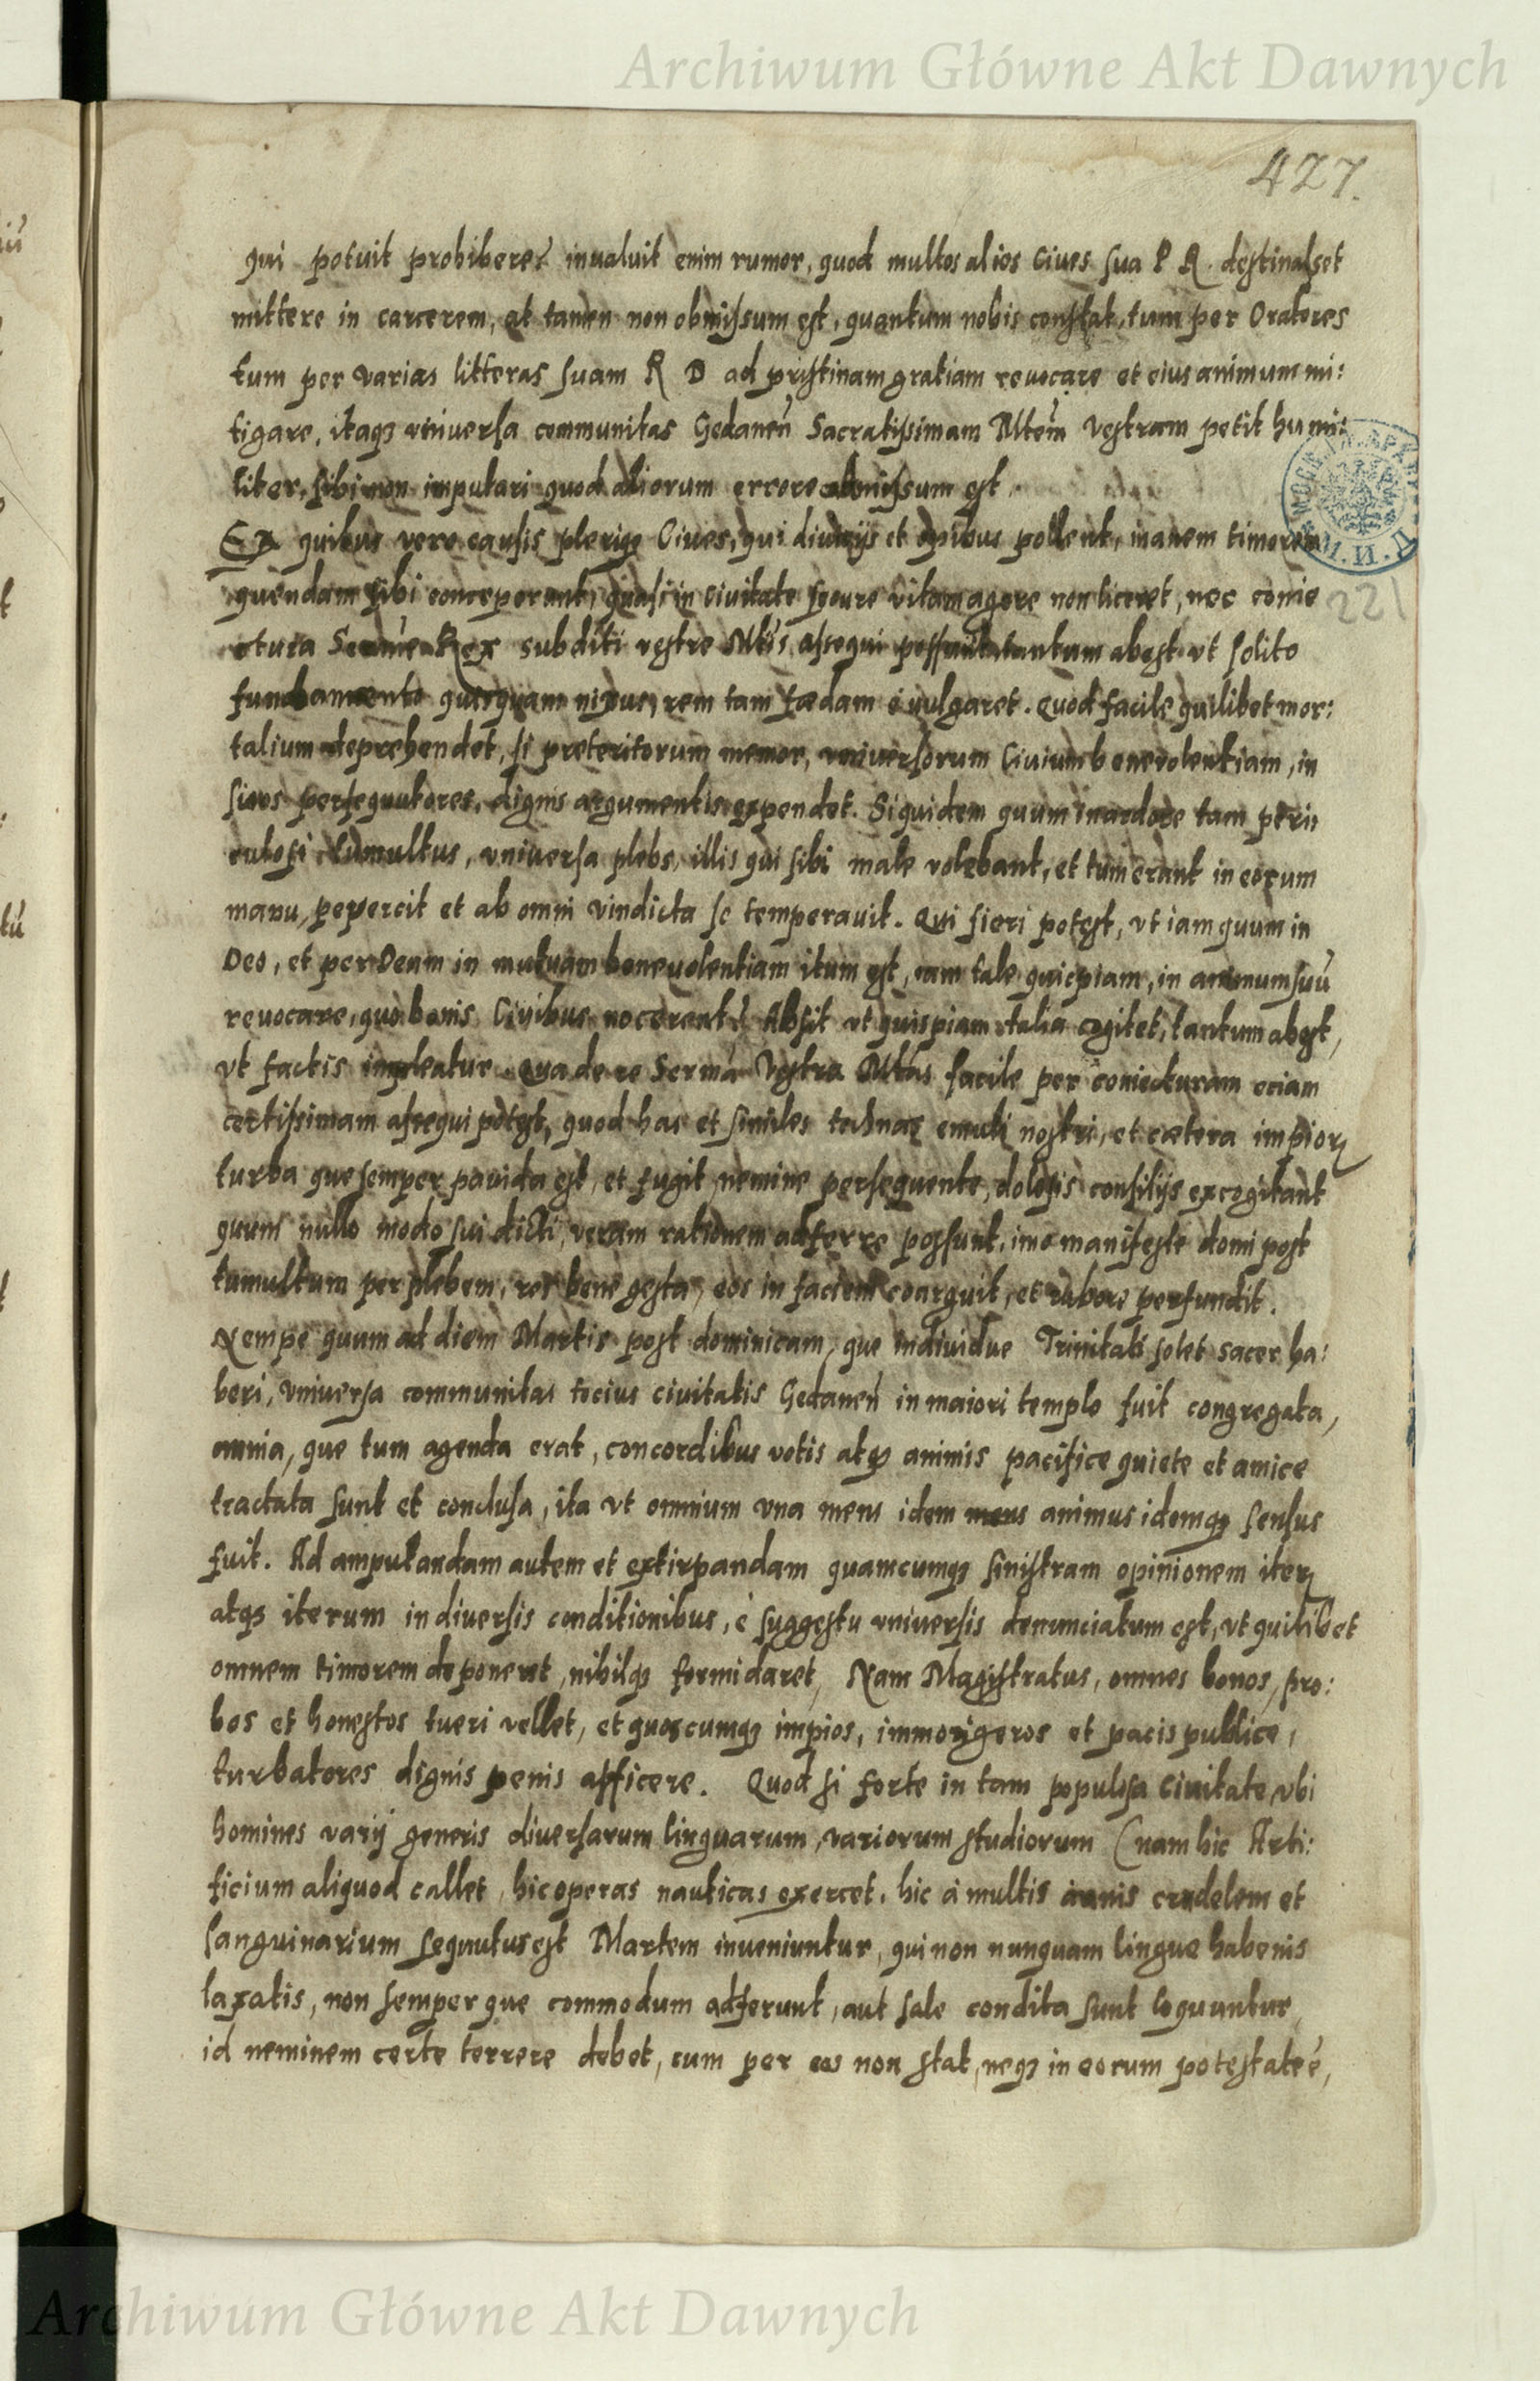 Archiwum Główne Akt Dawnych
427.
qui potuit prohibere? inualuit enim rumor, quod multos alios Ciues sua P R destinasset
mittere in carcerem, at tamen non obmissum est, quantum nobis constat, tum per Oratores
tum per varias litteras suam R D ad pristinam gratiam reuocare et eius animum mi:
tigare, itaqz vniuersa communitas Gedanen̄ Sacratissimam Mtem̄ Vestram petit humi:
liter, sibi non imputari quod aliorum errore obmissum est
Ex quibus vero causis pleriqz Ciues, qui diuitijs et opibus pollent, inanem timorem
quendam sibi conceperant, quasi in Ciuitate secure vitam agere non liceret, nec conie
221
ctura Serme Rex subditi vestre Mtis assequi possunt, tantum abest vt solito
fundamento quisquam nixus, rem tam fœdam euulgaret. Quod facile quilibet mor:
talium deprehendet, si preteritorum memor, vniuersorum Ciuium beneuolentiam, in
suos persequutores, dignis argumentis expendet. Siquidem quum in ardore tam peri:
culosi tumultus, vniuersa plebs, illis qui sibi male volebant, et tum erant in eorum
manu, pepercit et ab omni vindicta se temperauit. Qui fieri potest, vt iam quum in
Deo, et per Deum in mutuam beneuolentiam itum est, tale quicpiam, in animum suū
reuocare, quo bonis Ciuibus nocerent? Absit vt quispiam talia cogitet, tantum abest,
vt factis impleatur. Qua de re Serma Vestra Mtas facile per coniecturam eciam
certissimam assequi potest, quod has et similes technas emuli nostri, et cætera impiorꝝ
turba que semper pauida est, et fugit nemine persequente, dolosis consilijs excogitant
quum nullo modo sui dicti, veram rationem adferre possunt, imo manifeste domi post
tumultum per plebem, res bene gesta, eos in faciem coarguit, et rubore perfundit.
Nempe quum ad diem Martis post dominicam, que indiuidue Trinitati solet sacer ha:
beri, vniuersa communitas tocius ciuitatis Gedanen̄ in maiori templo fuit congregata,
omnia, que tum agenda erat, concordibus votis atqz animis pacifice quiete et amice
tractata sunt et conclusa, ita vt omnium vna mens idem mens animus idemqz sensus
fuit. Ad amputandam autem et extirpandam quamcumqz sinistram opinionem iterꝝ
atqz iterum in diuersis conditionibus, è suggestu vniuersis denunciatum est, vt quilibet
omnem timorem deponeret, nihilqz formidaret, Nam Magistratus, omnes bonos, pro:
bos et honestos tueri vellet, et quoscumqz impios, immorigeros et pacis publice,
turbatores dignis penis afficere. Quod si forte in tam populosa Ciuitate, vbi
homines varij generis diuersarum linguarum, variorum studiorum (nam hic Arti:
ficium aliquod callet, hic operas nauticas exercet, hic à multis annis crudelem et
sanguinarium sequutus est Martem inueniuntur, qui non nunquam lingue habenis
laxatis, non semper que commodum adferunt, aut sale condita sunt loquuntur,
id neminem certe terrere debet, cum per eos non stat, neqz in eorum potestate ē,
Archiwum Główne Akt Dawnych